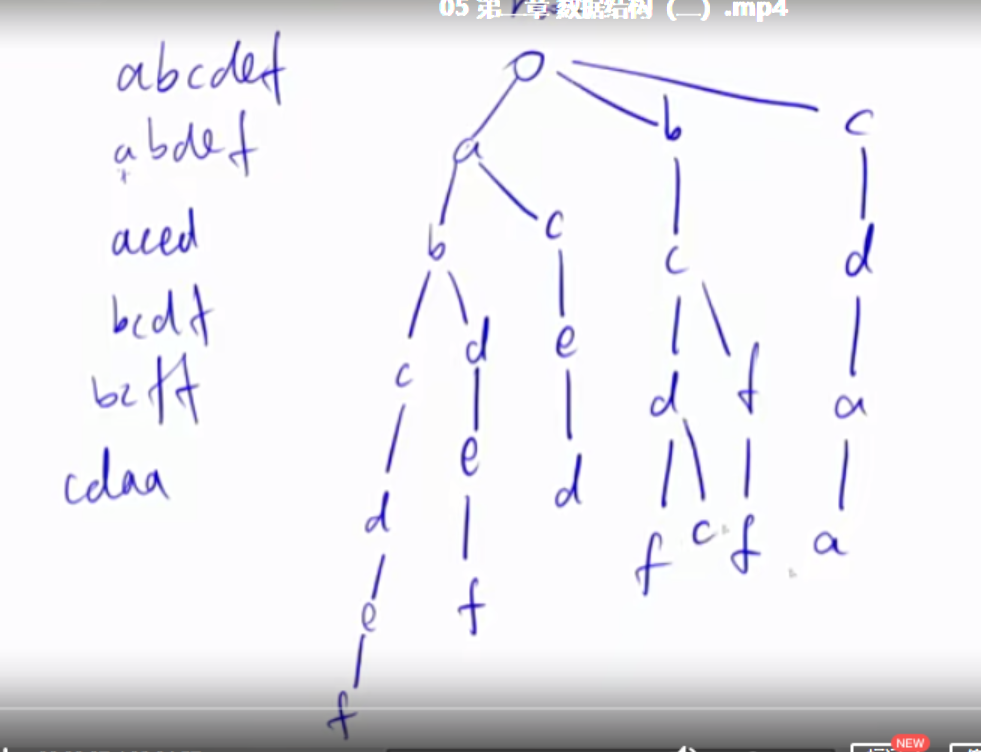 05 第二章 数据结构（二）.mp4
abcdef
abdef
aced
bcdf
bcff
cdaa
a b c
b c c d
c d e d f a
d e d f c f a
e f
f
NEW